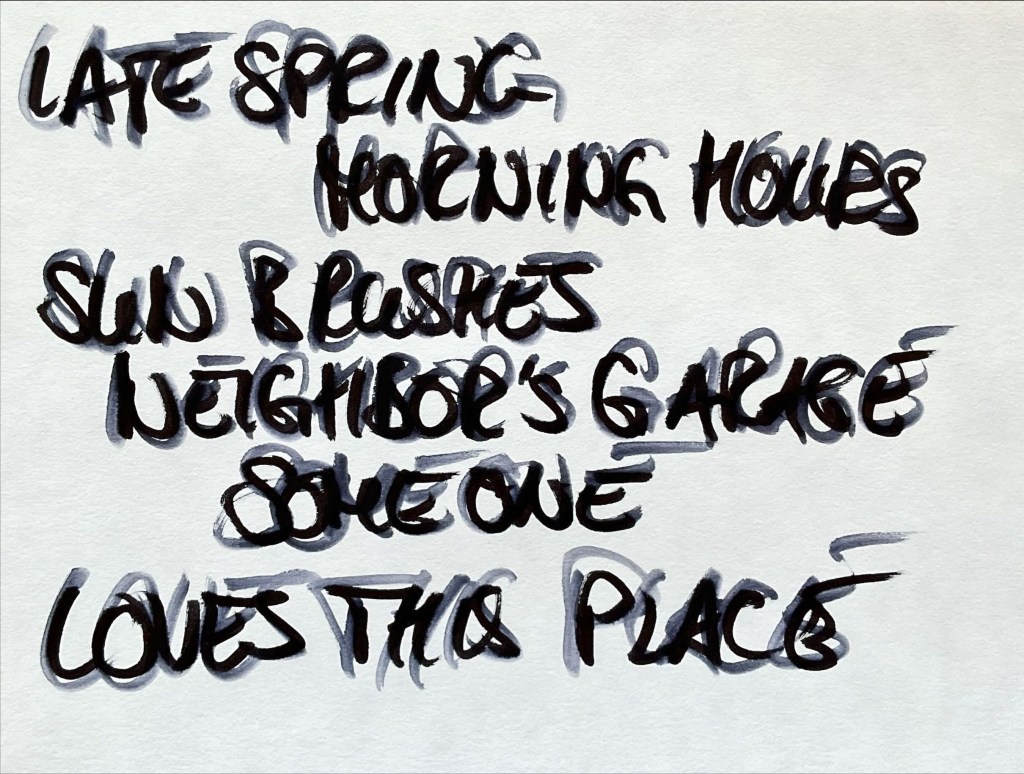 LATE SPRING
MORNING HOURS
SUN BRUSHES
NEIGHBOR'S GARAGE
SOMEONE
LOVES THIS PLACE